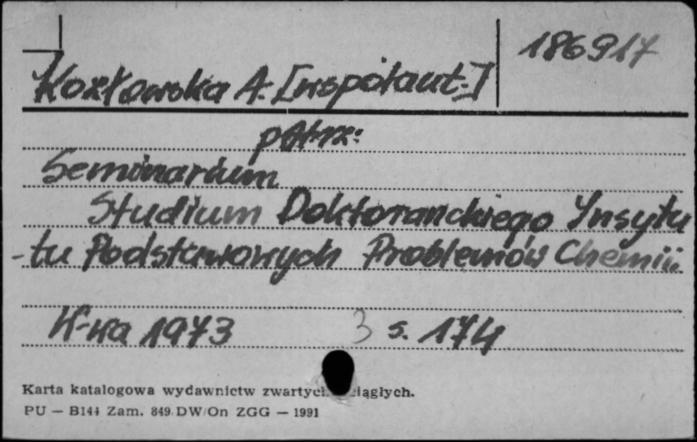 186917
Kozłowska A. [współaut.]
patrz:
Seminarium
Studium Doktoranckiego Ynsytu
-tu Podstawowych Problemów Chemii
K-wa 1973 3 s. 174
Karta katalogowa wydawnictw zwartych ciągłych.
PU — B144 Zam. 849 DW/On ZGG — 1991